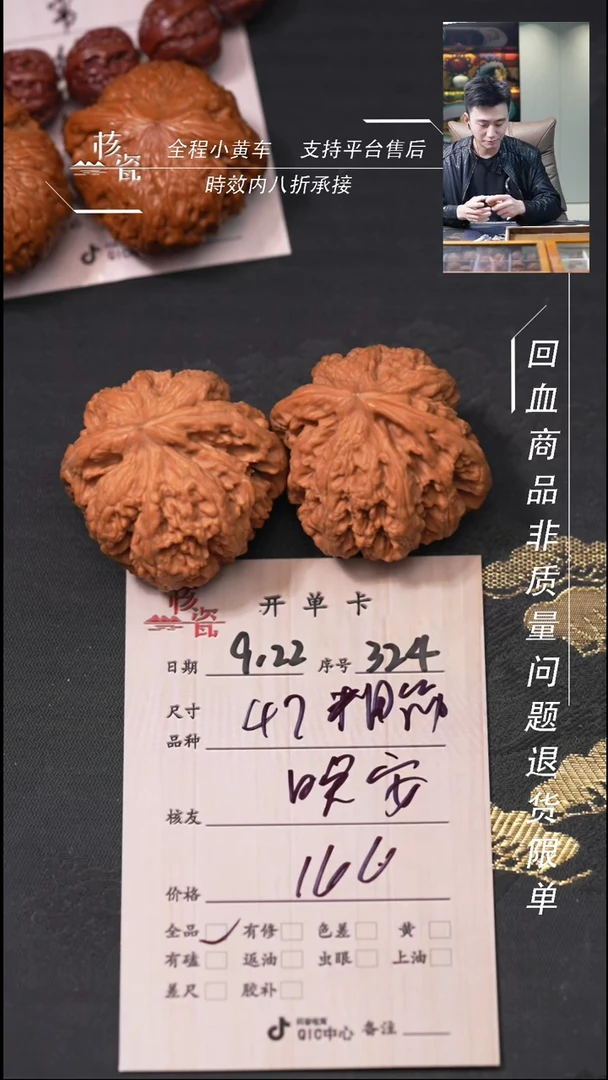 核瓷
全程小黄车 支持平台售后
時效内八折承接
回血商品非质量问题退货限单
核瓷
开单卡
日期 9.22 序号 324
尺寸 47 粗筋
品种
核友 晚安
价格 166
全品 有修 色差 黄
有磕 返油 虫眼 上油
差尺 胶补
抖音电商
QIC中心 备注